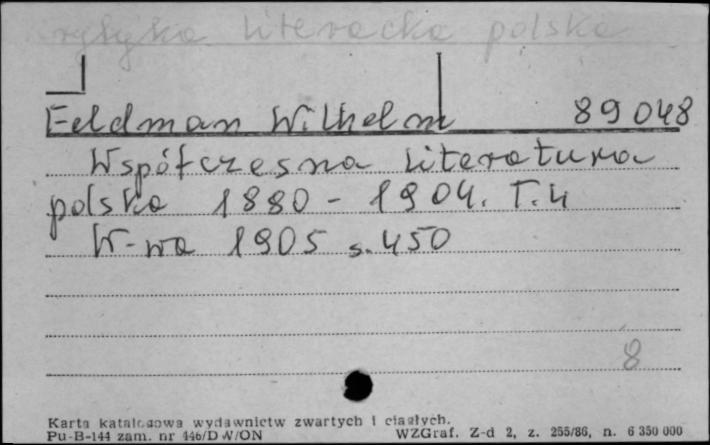 rytyka literacka polska
Feldman Wilhelm 89048
Współczesna literatura
polska 1880 - 1904. T.4
W-wa 1905 s. 450
8
Karta katalogowa wydawnictw zwartych i ciągłych.
Pu-B-144 zam. nr 446/DW/ON WZGraf. Z-d 2, z. 255/86, n. 6 350 000